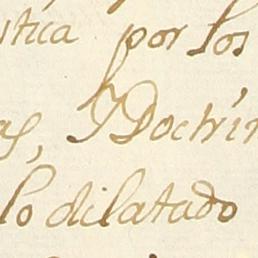 stica por los
as, Y Doctrin
lo dilatado